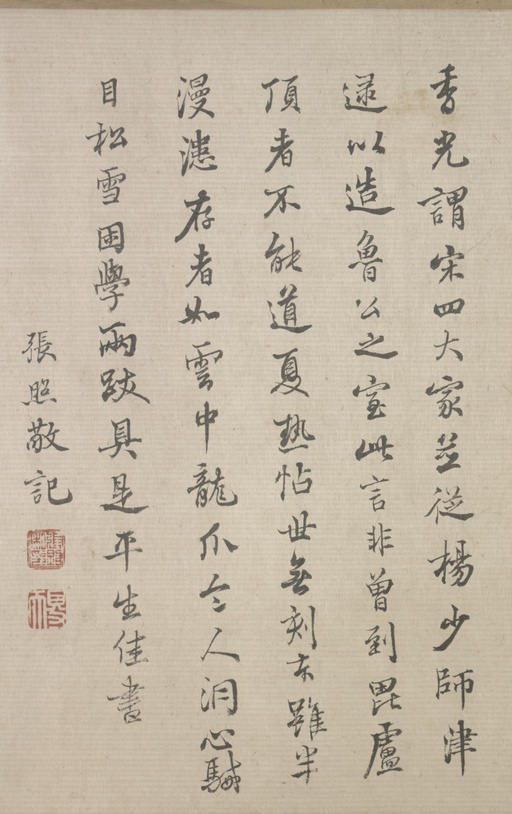 香光謂宋四大家並從楊少師津
逮以造魯公之室此言非曾到毘盧
頂者不能道夏热帖世無刻本雖半
漫漶存者如雲中龍爪令人洞心駴
目松雪困學兩跋具是平生佳書
張照敬記